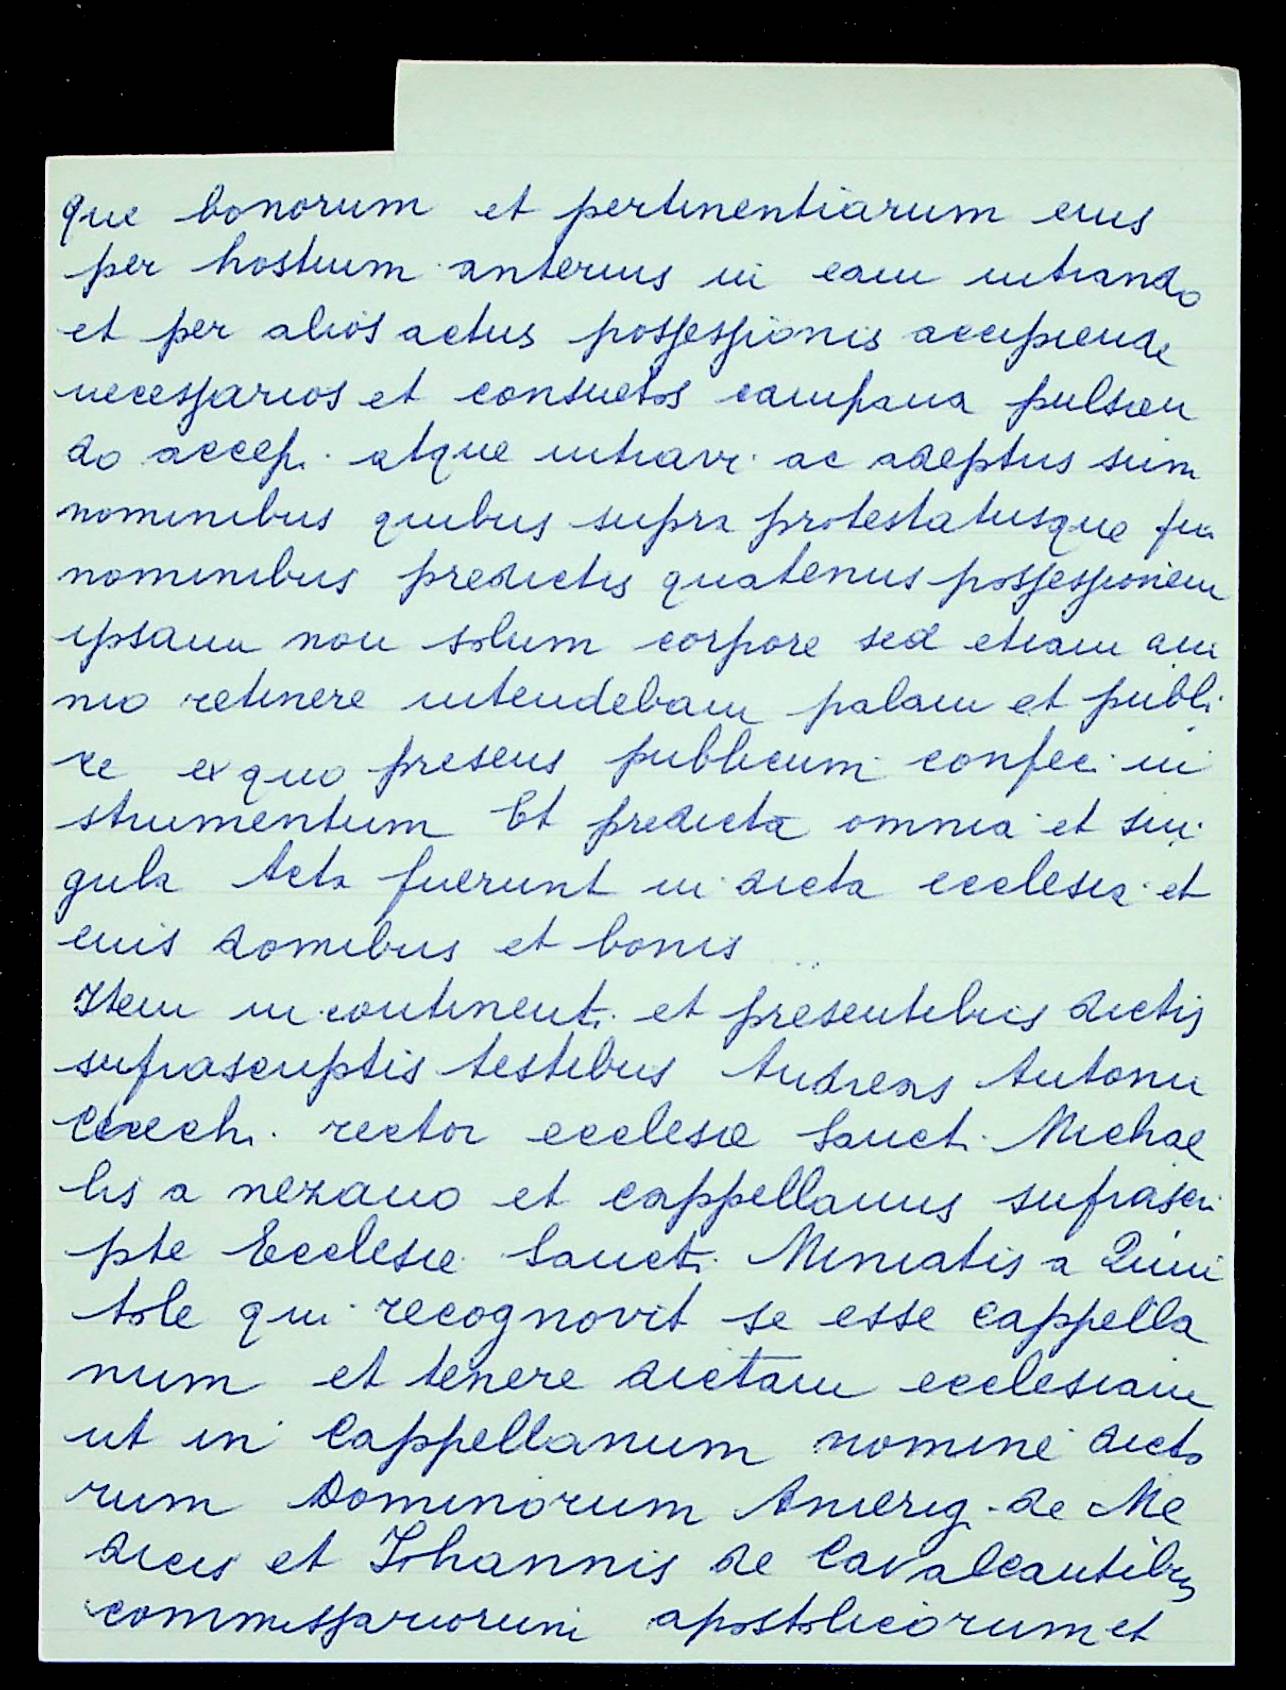 que bonorum et pertinentiarum eius
per hostium anterius in eam intrando
et per alios actus possessionis accipiende
necessarios et consuetos campana pulsan
do accepi atque intravi ac adeptus sum
nominibus quibus supra protestatusque fui
nominibus predictis quatenus possessionem
ipsam non solum corpore sed etiam ani
mo retinere intendebam palam et publi
ce ex quo presens publicum confeci in
strumentum Et predicta omnia et sin
gula Acta fuerunt in dicta ecclesia et
eius domibus et bonis
Item in continenti et presentibus dictis
suprascriptis testibus Andreas Antonii
rector ecclesie Sancti Michae
lis a nezano et cappellanus suprascri
pte Ecclesie Sancti Miniatis a Quin
tole qui recognovit se esse cappella
num et tenere dictam ecclesiam
ut in Cappellanum nomine dicto
rum Dominorum Amerigi de Me
dicis et Johannis de Cavalcantibus
commissariorum apostolicorum et